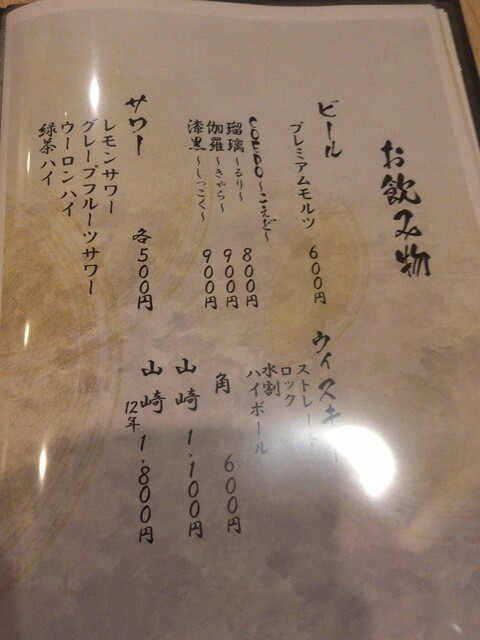 お飲み物
ビール
プレミアムモルツ 600円
COEDO～こえど～
瑠璃～るり～ 800円
伽羅～きゃら～ 900円
漆黒～しっこく～ 900円
サワー 各500円
レモンサワー
グレープフルーツサワー
ウーロンハイ
緑茶ハイ
ウィスキー
ストレート
ロック
水割
ハイボール
角 600円
山崎 1,100円
山崎12年 1,800円